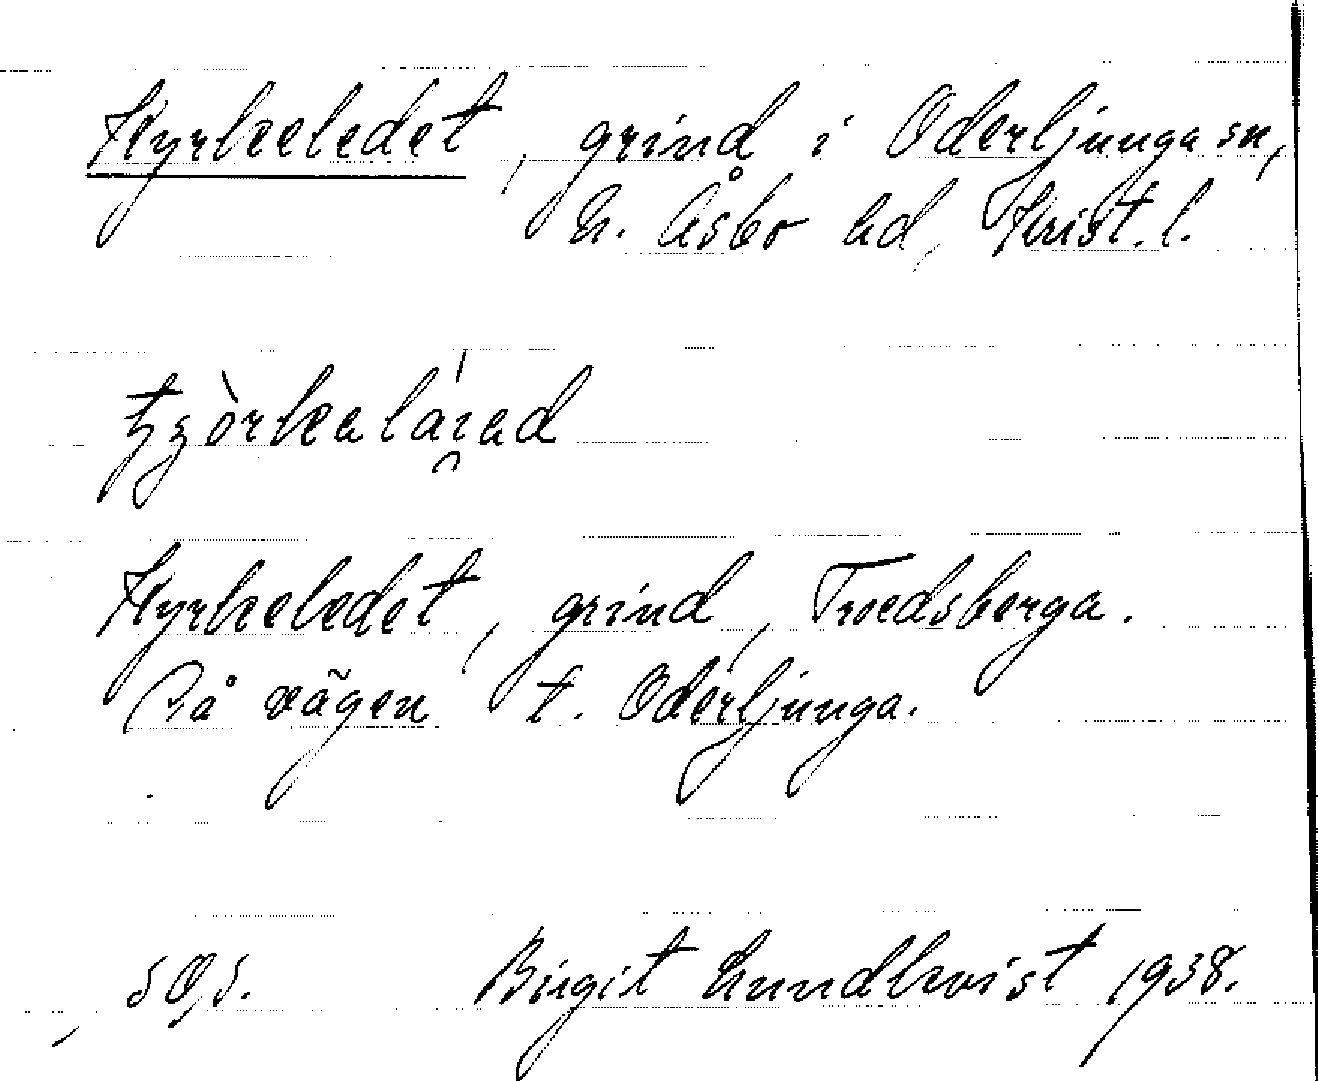 Kyrkeledet, grind i Oderljunga sn,
N. Åsbo hd, Krist. l.
Kyrkeledet, grind, Troedsberga.
På vägen t. Oderljunga.
Birgit Lundkvist 1938.